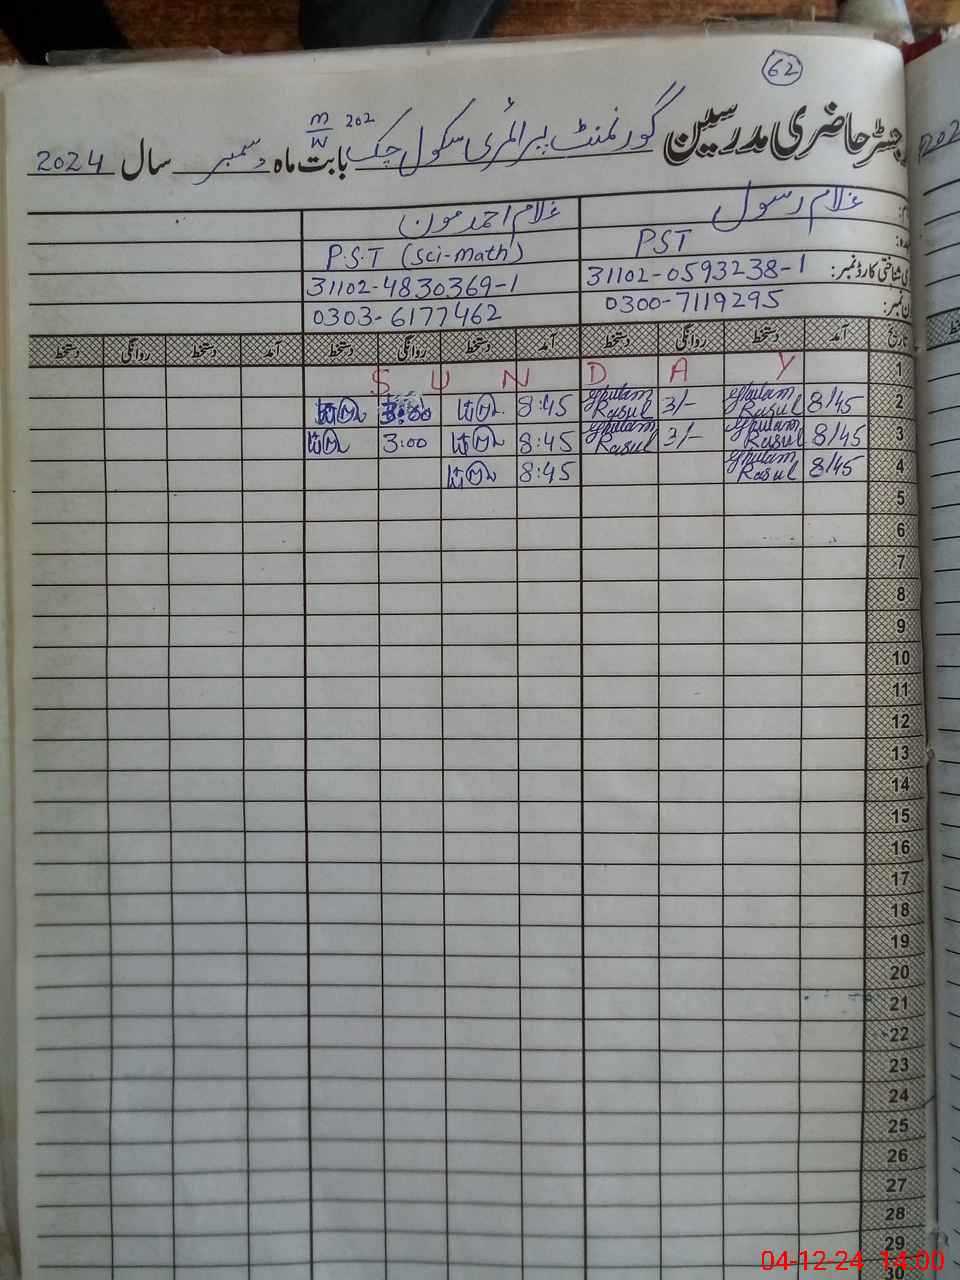 62
رجسٹر حاضری مدرسین گورنمنٹ پرائمری سکول چک 202 m/w بابت ماہ دسمبر سال 2024
غلام رسول غلام احمد مون
PST P.S.T (Sci-math)
شناختی کارڈ نمبر: 31102-0593238-1 31102-4830369-1
0300-7119295 0303-6177462
تاریخ آمد دستخط روانگی دستخط آمد دستخط روانگی دستخط آمد دستخط روانگی دستخط
1 S U N D A Y
2 8/45 Ghulam Rasul 3/- Ghulam Rasul 8:45 3:00
3 8/45 Ghulam Rasul 3/- Ghulam Rasul 8:45 3:00
4 8/45 Ghulam Rasul 8:45
5
6
7
8
9
10
11
12
13
14
15
16
17
18
19
20
21
22
23
24
25
26
27
28
29
30
04-12-24 14:00